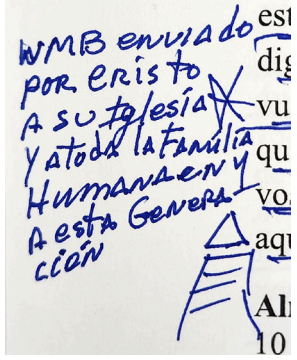 WMB enviado
por Cristo
A su Iglesia
Y a toda la Familia
Humana en Y
A esta Genera-
ción
est
dig
vu
qu
vo
aqu
Al
10